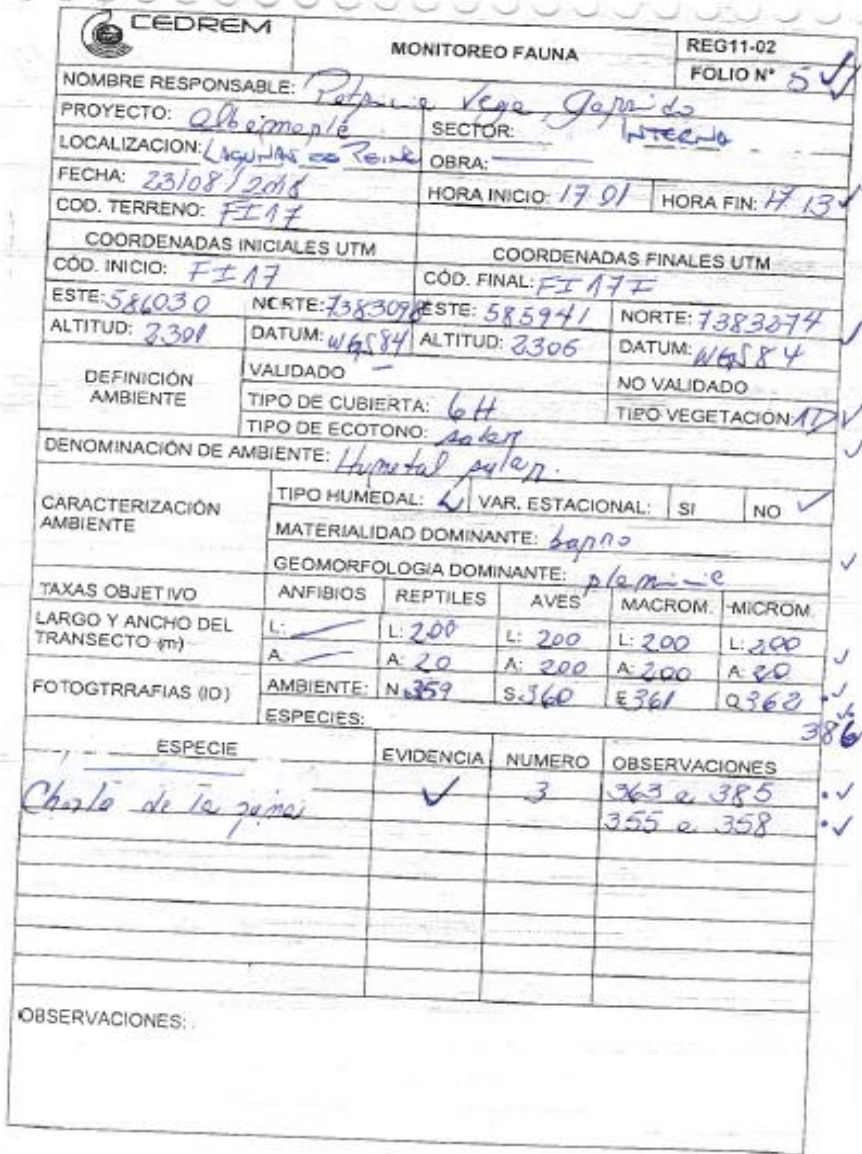 CEDREM
MONITOREO FAUNA
REG11-02
FOLIO N° 5
NOMBRE RESPONSABLE: Patricia Vega Garrido
PROYECTO: Albemarle
SECTOR: INTERNO
LOCALIZACION: LAGUNAS DE REINE
OBRA:
FECHA: 23/08/2018
HORA INICIO: 17 01
HORA FIN: 17 13
COD. TERRENO: FI17
COORDENADAS INICIALES UTM
COORDENADAS FINALES UTM
CÓD. INICIO: FI17
CÓD. FINAL: FI17F
ESTE: 586030
NORTE: 7383098
ESTE: 585941
NORTE: 7383274
ALTITUD: 2301
DATUM: WGS84
ALTITUD: 2306
DATUM: WGS84
DEFINICIÓN AMBIENTE
VALIDADO -
NO VALIDADO
TIPO DE CUBIERTA: 6H
TIPO VEGETACIÓN: 1D
TIPO DE ECOTONO: salar
DENOMINACIÓN DE AMBIENTE: Humetal salar.
CARACTERIZACIÓN AMBIENTE
TIPO HUMEDAL: L
VAR. ESTACIONAL:
SI
NO ✓
MATERIALIDAD DOMINANTE: barro
GEOMORFOLOGIA DOMINANTE: planicie
TAXAS OBJETIVO
ANFIBIOS
REPTILES
AVES
MACROM.
MICROM.
LARGO Y ANCHO DEL TRANSECTO (m)
L:
L: 200
L: 200
L: 200
L: 200
A:
A: 20
A: 200
A: 200
A: 20
FOTOGTRRAFIAS (ID)
AMBIENTE:
N 359
S 360
E 361
O 362
ESPECIES:
386
ESPECIE
EVIDENCIA
NUMERO
OBSERVACIONES
Chorlo de la puna
✓
3
363 a 385
355 a 358
OBSERVACIONES: